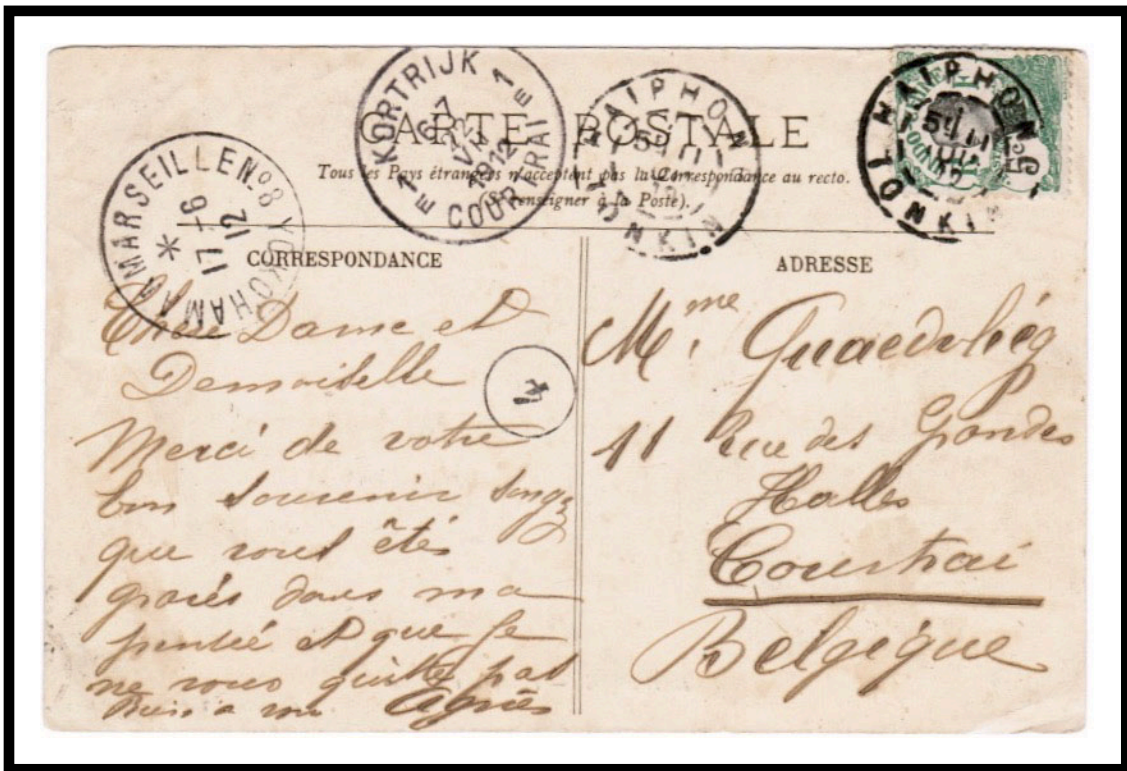 CARTE POSTALE
Tous les Pays étrangers n'acceptent pas la Correspondance au recto.
(Se renseigner à la Poste).
KORTRIJK
1E 1E
6-7
12
VII
1912
COURTRAI
HAIPHONG
TONKIN
HAIPHONG
TONKIN
5c
MARSEILLE No8 YOKOHAMA
17-6
12
CORRESPONDANCE
Chère Dame et
Demoiselle
Merci de votre
bon souvenir songz
que vous êtés
gravés dans ma
pensée et que je
ne vous quitte pas
Bien a vous Agnès
ADRESSE
Mme Quaedvliég
11 Rue des Grandes
Halles
Courtrai
Belgique